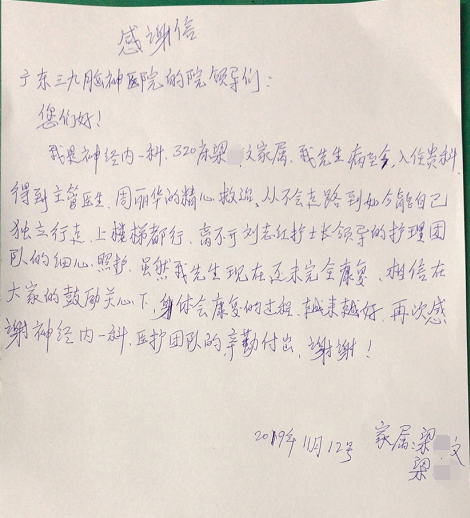 感谢信
广东三九脑神医院的院领导们:
您们好!
我是神经内一科.320床梁 文家属.我先生病至今,入住贵科,
得到主管医生,周丽华的精心救治,从不会走路到如今能自己
独立行走,上楼梯都行,离不开刘志红护士长领导的护理团
队的细心.照护.虽然我先生现在还未完全康复、相信在
大家的鼓励关心下,身体会康复的过程.越来越好.再次感
谢神经内一科.医护团队的辛勤付出,谢谢!
2019年11月12号 家属:梁
梁 文